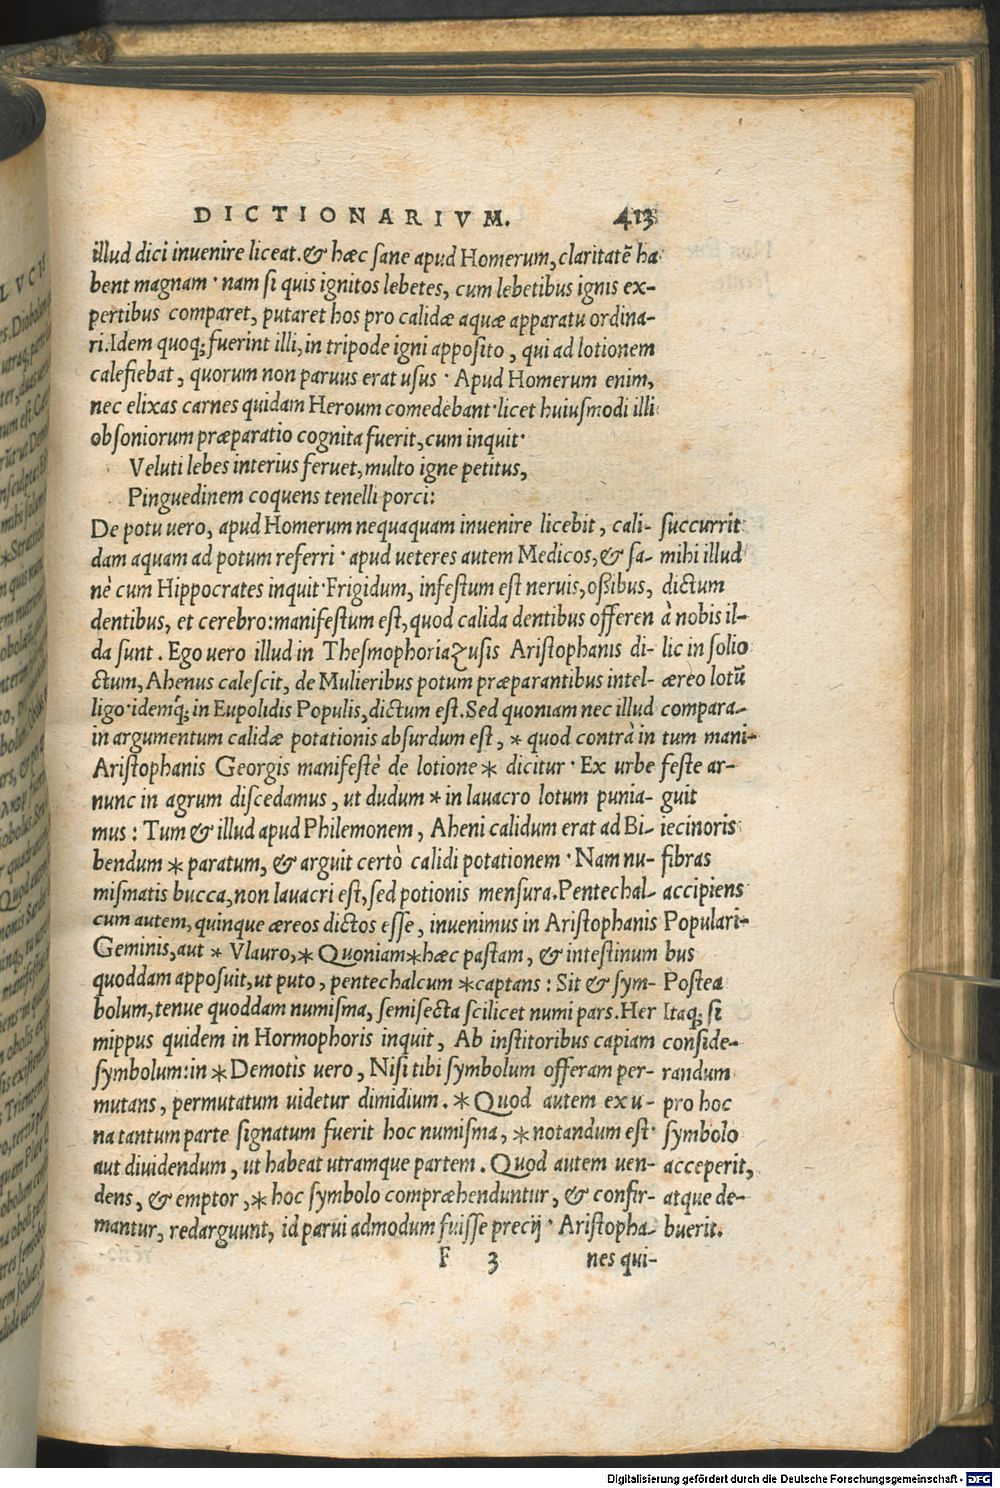 DICTIONARIVM. 413
illud dici inuenire liceat. & hæc sane apud Homerum, claritatẽ ha
bent magnam · nam si quis ignitos lebetes, cum lebetibus ignis ex-
pertibus comparet, putaret hos pro calidæ aquæ apparatu ordina-
ri. Idem quoq; fuerint illi, in tripode igni apposito, qui ad lotionem
calefiebat, quorum non paruus erat usus · Apud Homerum enim,
nec elixas carnes quidam Heroum comedebant · licet huiusmodi illi
obsoniorum præparatio cognita fuerit, cum inquit ·
Veluti lebes interius feruet, multo igne petitus,
Pinguedinem coquens tenelli porci:
De potu uero, apud Homerum nequaquam inuenire licebit, cali-
dam aquam ad potum referri · apud ueteres autem Medicos, & sa-
nè cum Hippocrates inquit · Frigidum, infestum est neruis, oßibus,
dentibus, et cerebro: manifestum est, quod calida dentibus offeren
da sunt. Ego uero illud in Thesmophoriazusis Aristophanis di-
ctum, Ahenus calescit, de Mulieribus potum præparantibus intel-
ligo · idemq́; in Eupolidis Populis, dictum est. Sed quoniam nec illud
in argumentum calidæ potationis absurdum est, * quod contrà in
Aristophanis Georgis manifestè de lotione * dicitur · Ex urbe
nunc in agrum discedamus, ut dudum * in lauacro lotum punia-
mus: Tum & illud apud Philemonem, Aheni calidum erat ad Bi-
bendum * paratum, & arguit certò calidi potationem · Nam nu-
mismatis bucca, non lauacri est, sed potionis mensura. Pentechal-
cum autem, quinque æreos dictos esse, inuenimus in Aristophanis
Geminis, aut * Vlauro, * Quoniam * hæc pastam, & intestinum
quoddam apposuit, ut puto, pentechalcum * captans: Sit & sym-
bolum, tenue quoddam numisma, semisecta scilicet numi pars. Her
mippus quidem in Hormophoris inquit, Ab institoribus capiam
symbolum: in * Demotis uero, Nisi tibi symbolum offeram per-
mutans, permutatum uidetur dimidium. * Quod autem ex u-
na tantum parte signatum fuerit hoc numisma, * notandum est ·
aut diuidendum, ut habeat utramque partem. Quod autem uen-
dens, & emptor, * hoc symbolo compræhenduntur, & confir-
mantur, redarguunt, id parui admodum fuisse precij · Aristopha-
F 3 nes qui-
succurrit
mihi illud
dictum
à nobis il-
lic in solio
æreo lotũ
compara-
tum mani-
feste ar-
guit
iecinoris
fibras
accipiens
Populari-
bus
Postea
Itaq; si
conside-
randum
pro hoc
symbolo
acceperit,
atque de-
buerit.
Digitalisierung gefördert durch die Deutsche Forschungsgemeinschaft - DFG